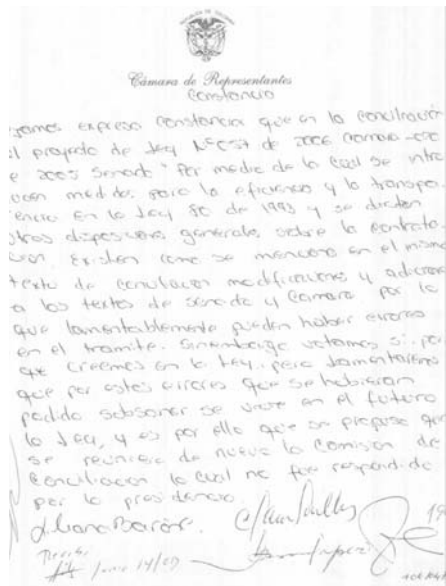 Cámara de Representantes
Constancia
expresa constancia que en la conciliación
proyecto de Ley Nº 057 de 2006 Camara -
2005 Senado "Por medio de la cual se intro
medidas para la eficiencia y la transpa
en la Ley 80 de 1993 y se dictan
otras disposiciones generales sobre la contrata-
Existen como se menciona en el mismo
texto de conciliacion modificaciones y
a los textos de senado y Camara por lo
que lamentablemente pueden haber errores
en el tramite. Sinembargo votamos si. por
que creemos en la Ley. pero lamentaremos
que por estos errores que se hubieran
podido subsanar se en el futuro
la Ley, y es por ello que se propuso que
se reuniera de nuevo la Comision de
Conciliacion lo cual no fue respondido
por la presidencia.
Liliana Barón
Junio 14/07